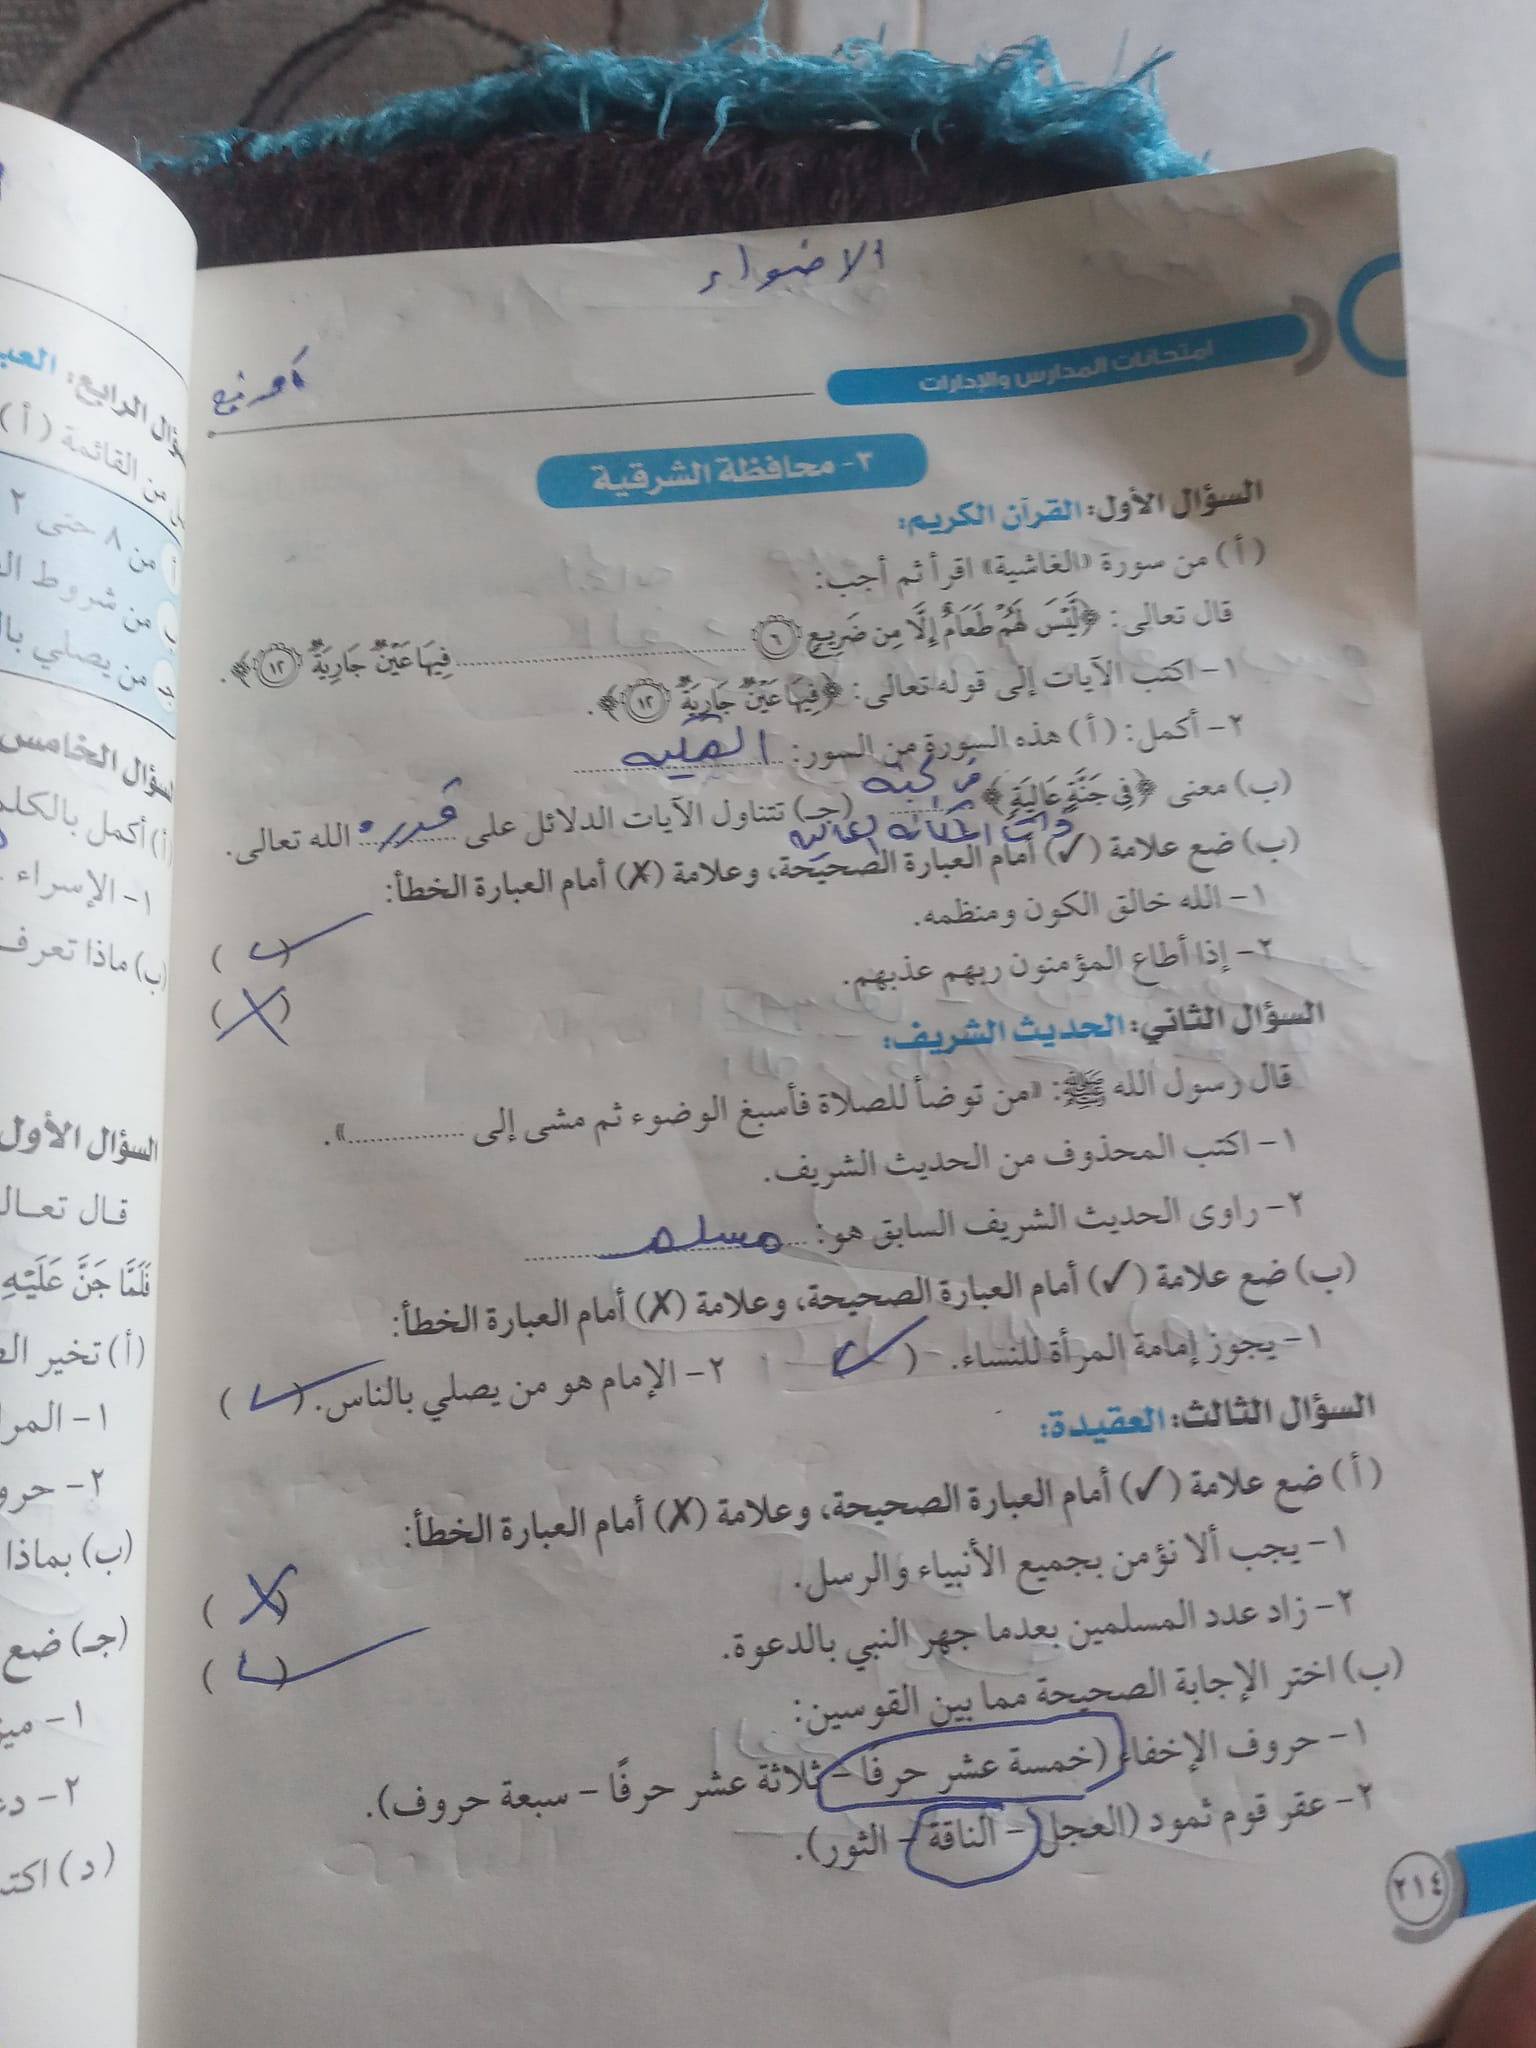 الاضواء
امتحانات المدارس والإدارات
٣- محافظة الشرقية
السؤال الأول: القرآن الكريم:
(أ) من سورة «الغاشية» اقرأ ثم أجب:
قال تعالى: ﴿لَّيْسَ لَهُمْ طَعَامٌ إِلَّا مِن ضَرِيعٍ ٦ .......... فِيهَا عَيْنٌ جَارِيَةٌ ١٢﴾.
١- اكتب الآيات إلى قوله تعالى: ﴿فِيهَا عَيْنٌ جَارِيَةٌ ١٢﴾.
٢- أكمل: (أ) هذه السورة من السور: المكيه
(ب) معنى ﴿فِي جَنَّةٍ عَالِيَةٍ﴾ في الجنه ذات المكانه العاليه (جـ) تتناول الآيات الدلائل على قدره الله تعالى.
(ب) ضع علامة (✓) أمام العبارة الصحيحة، وعلامة (✗) أمام العبارة الخطأ:
١- الله خالق الكون ومنظمه. (✓)
٢- إذا أطاع المؤمنون ربهم عذبهم. (✗)
السؤال الثاني: الحديث الشريف:
قال رسول الله ﷺ: «من توضأ للصلاة فأسبغ الوضوء ثم مشى إلى ..........».
١- اكتب المحذوف من الحديث الشريف.
٢- راوى الحديث الشريف السابق هو: مسلم
(ب) ضع علامة (✓) أمام العبارة الصحيحة، وعلامة (✗) أمام العبارة الخطأ:
١- يجوز إمامة المرأة للنساء. (✓) ٢- الإمام هو من يصلي بالناس. (✓)
السؤال الثالث: العقيدة:
(أ) ضع علامة (✓) أمام العبارة الصحيحة، وعلامة (✗) أمام العبارة الخطأ:
١- يجب ألا نؤمن بجميع الأنبياء والرسل. (✗)
٢- زاد عدد المسلمين بعدما جهر النبي بالدعوة. (✓)
(ب) اختر الإجابة الصحيحة مما بين القوسين:
١- حروف الإخفاء (خمسة عشر حرفًا - ثلاثة عشر حرفًا - سبعة حروف).
٢- عقر قوم ثمود (العجل - الناقة - الثور).
٢١٤
السؤال الرابع: العب
من القائمة (أ)
أ من ٨ حتى ٢
ب من شروط ال
جـ من يصلي بال
السؤال الخامس
(أ) أكمل بالكلم
١- الإسراء
(ب) ماذا تعرف
السؤال الأول
قال تعال
فَلَمَّا جَنَّ عَلَيْهِ
(أ) تخير ال
١- المرا
٢- حرو
(ب) بماذا
(جـ) ضع
١- ميز
٢- دع
(د) اكتـ